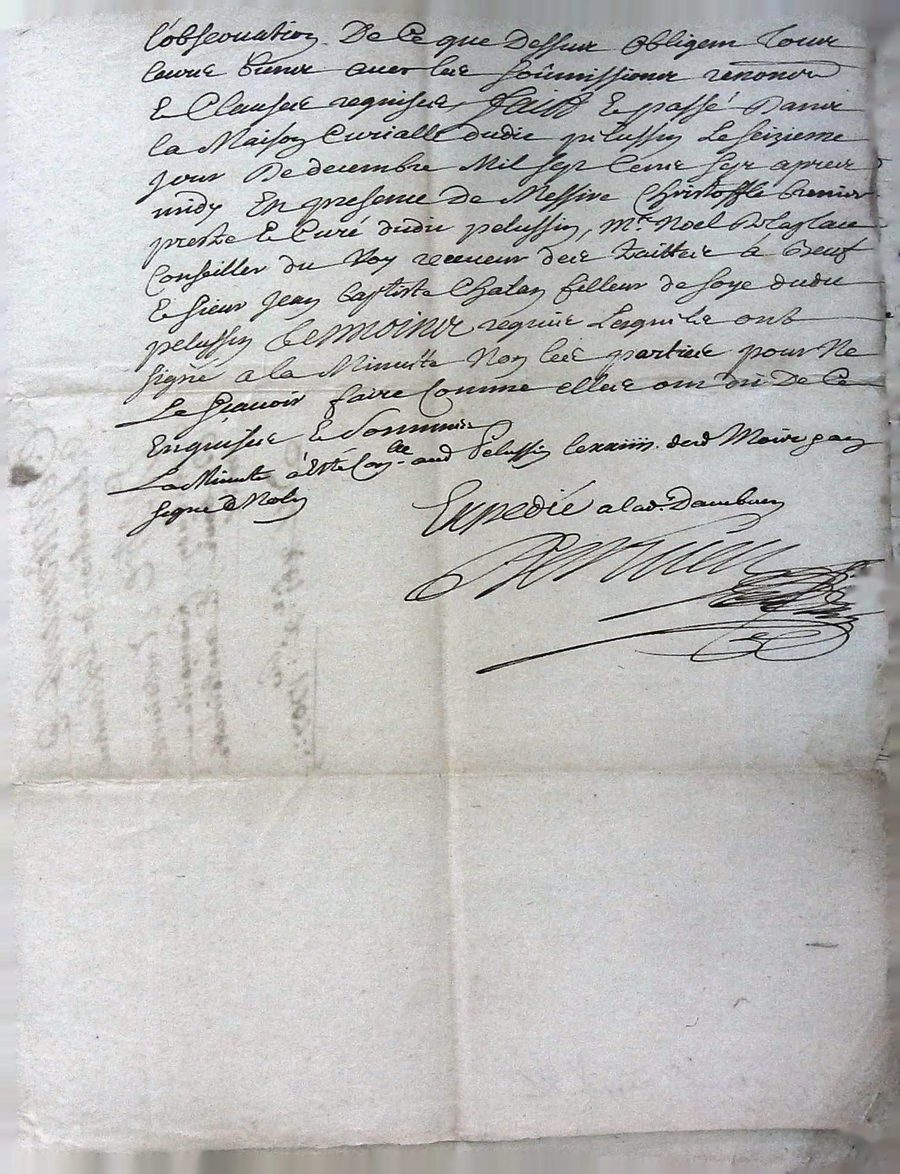 l'observation De Ce que Dessus obligent Tous
leurs biens avec les soûmissions renonc
Et Clauses requises, Faict Et passé Dans
la Maison Curialle dudit pelussin Le seizieme
jour De decembre Mil sept Cents sept apres
midy En presence De Messire Christoffle
prestre Et Curé dudit pelussin, Mre Noel
Conseiller du Roy receveur des Taittes à Beuf
Et sieur jean baptiste Chalan filleur de soye dudit
pelussin temoins requis Lesquels ont
signé a la Minutte Non les parties pour Ne
Le sçavoir faire Comme elles ont dit De Ce
Enquises Et sommées
La Minute à Esté Con.lée aud Pelussin le xxiiii. dud Mois par
signé
Expedié a lad.